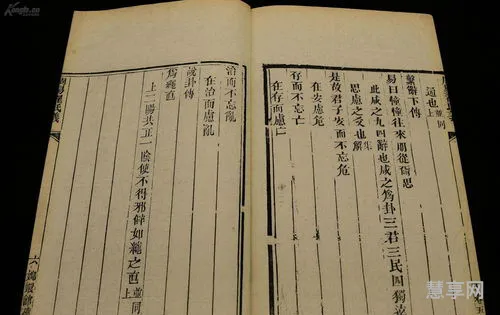 道也 並同上
繫辭下傳
易曰憧憧往來朋從爾思
此咸之九四辭也咸之爲卦三君三民四獨遠
思慮之爻也 集解
是故君子安而不忘危
在安慮危
存而不忘亡
在存而慮亡
治而不忘亂
在治而慮亂
說卦傳
爲繩直
上二陽共正一陰使不得邪僻如繩之直 並同上
六
慧享网